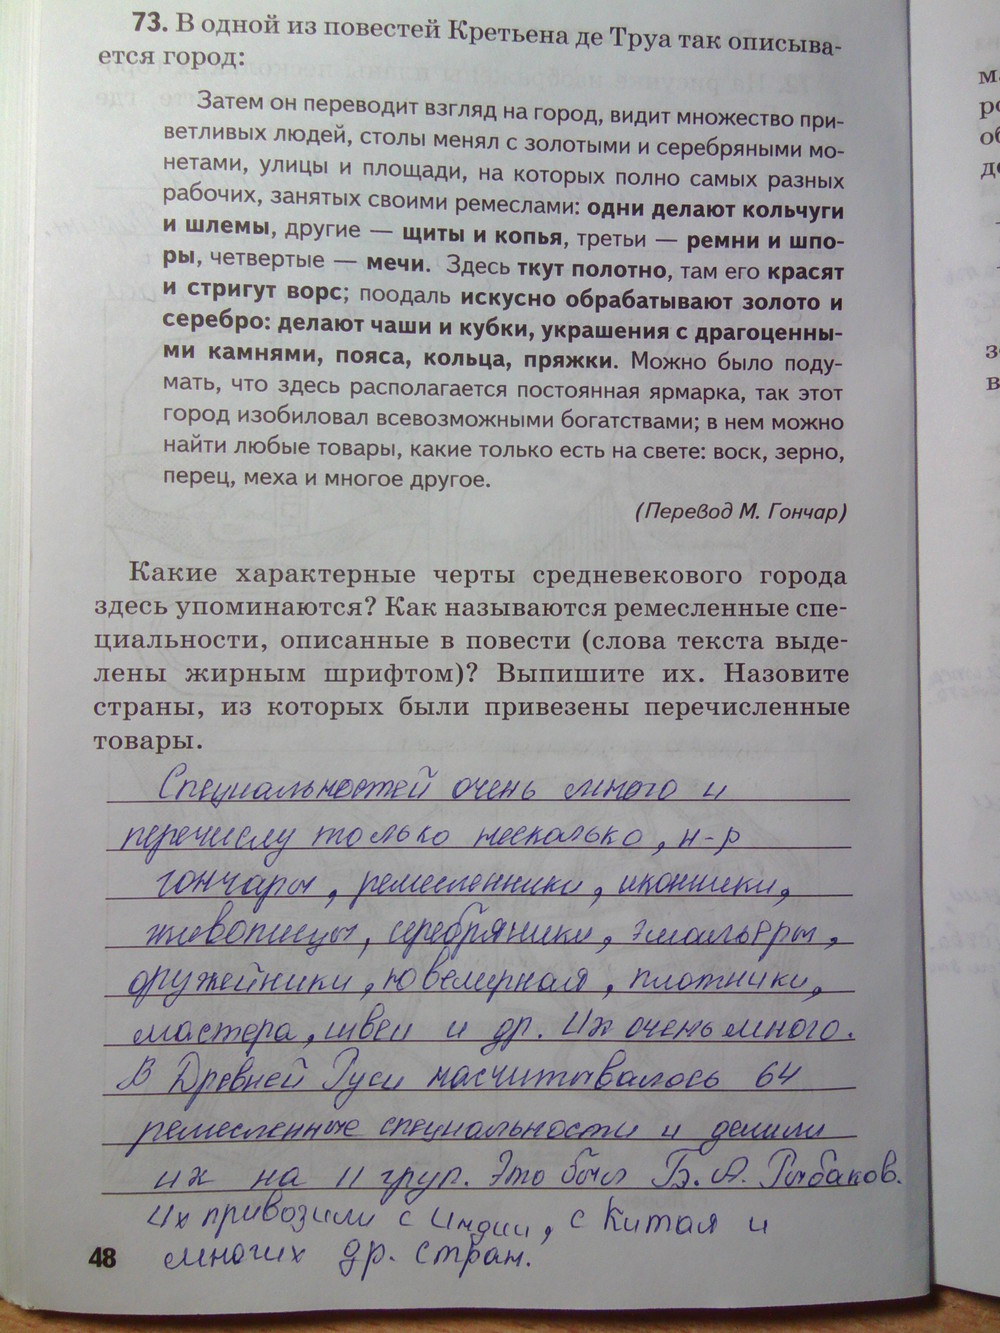 73. В одной из повестей Кретьена де Труа так описыва-
ется город:
Затем он переводит взгляд на город, видит множество при-
ветливых людей, столы менял с золотыми и серебряными мо-
нетами, улицы и площади, на которых полно самых разных
рабочих, занятых своими ремеслами: одни делают кольчуги
и шлемы, другие — щиты и копья, третьи — ремни и шпо-
ры, четвертые — мечи. Здесь ткут полотно, там его красят
и стригут ворс; поодаль искусно обрабатывают золото и
серебро: делают чаши и кубки, украшения с драгоценны-
ми камнями, пояса, кольца, пряжки. Можно было поду-
мать, что здесь располагается постоянная ярмарка, так этот
город изобиловал всевозможными богатствами; в нем можно
найти любые товары, какие только есть на свете: воск, зерно,
перец, меха и многое другое.
(Перевод М. Гончар)
Какие характерные черты средневекового города
здесь упоминаются? Как называются ремесленные спе-
циальности, описанные в повести (слова текста выде-
лены жирным шрифтом)? Выпишите их. Назовите
страны, из которых были привезены перечисленные
товары.
Специальностей очень много и
перечислу только несколько, н-р
гончары, ремесленники, иконники,
живописцы, серебряники, эмальеры,
оружейники, ювелирная, плотники,
мастера, швеи и др. Их очень много.
В Древней Руси насчитывалось 64
ремесленные специальности и делили
их на 11 груп. Это был Б. А. Рыбаков.
Их привозили с Индии, с Китая и
многих др. стран.
48